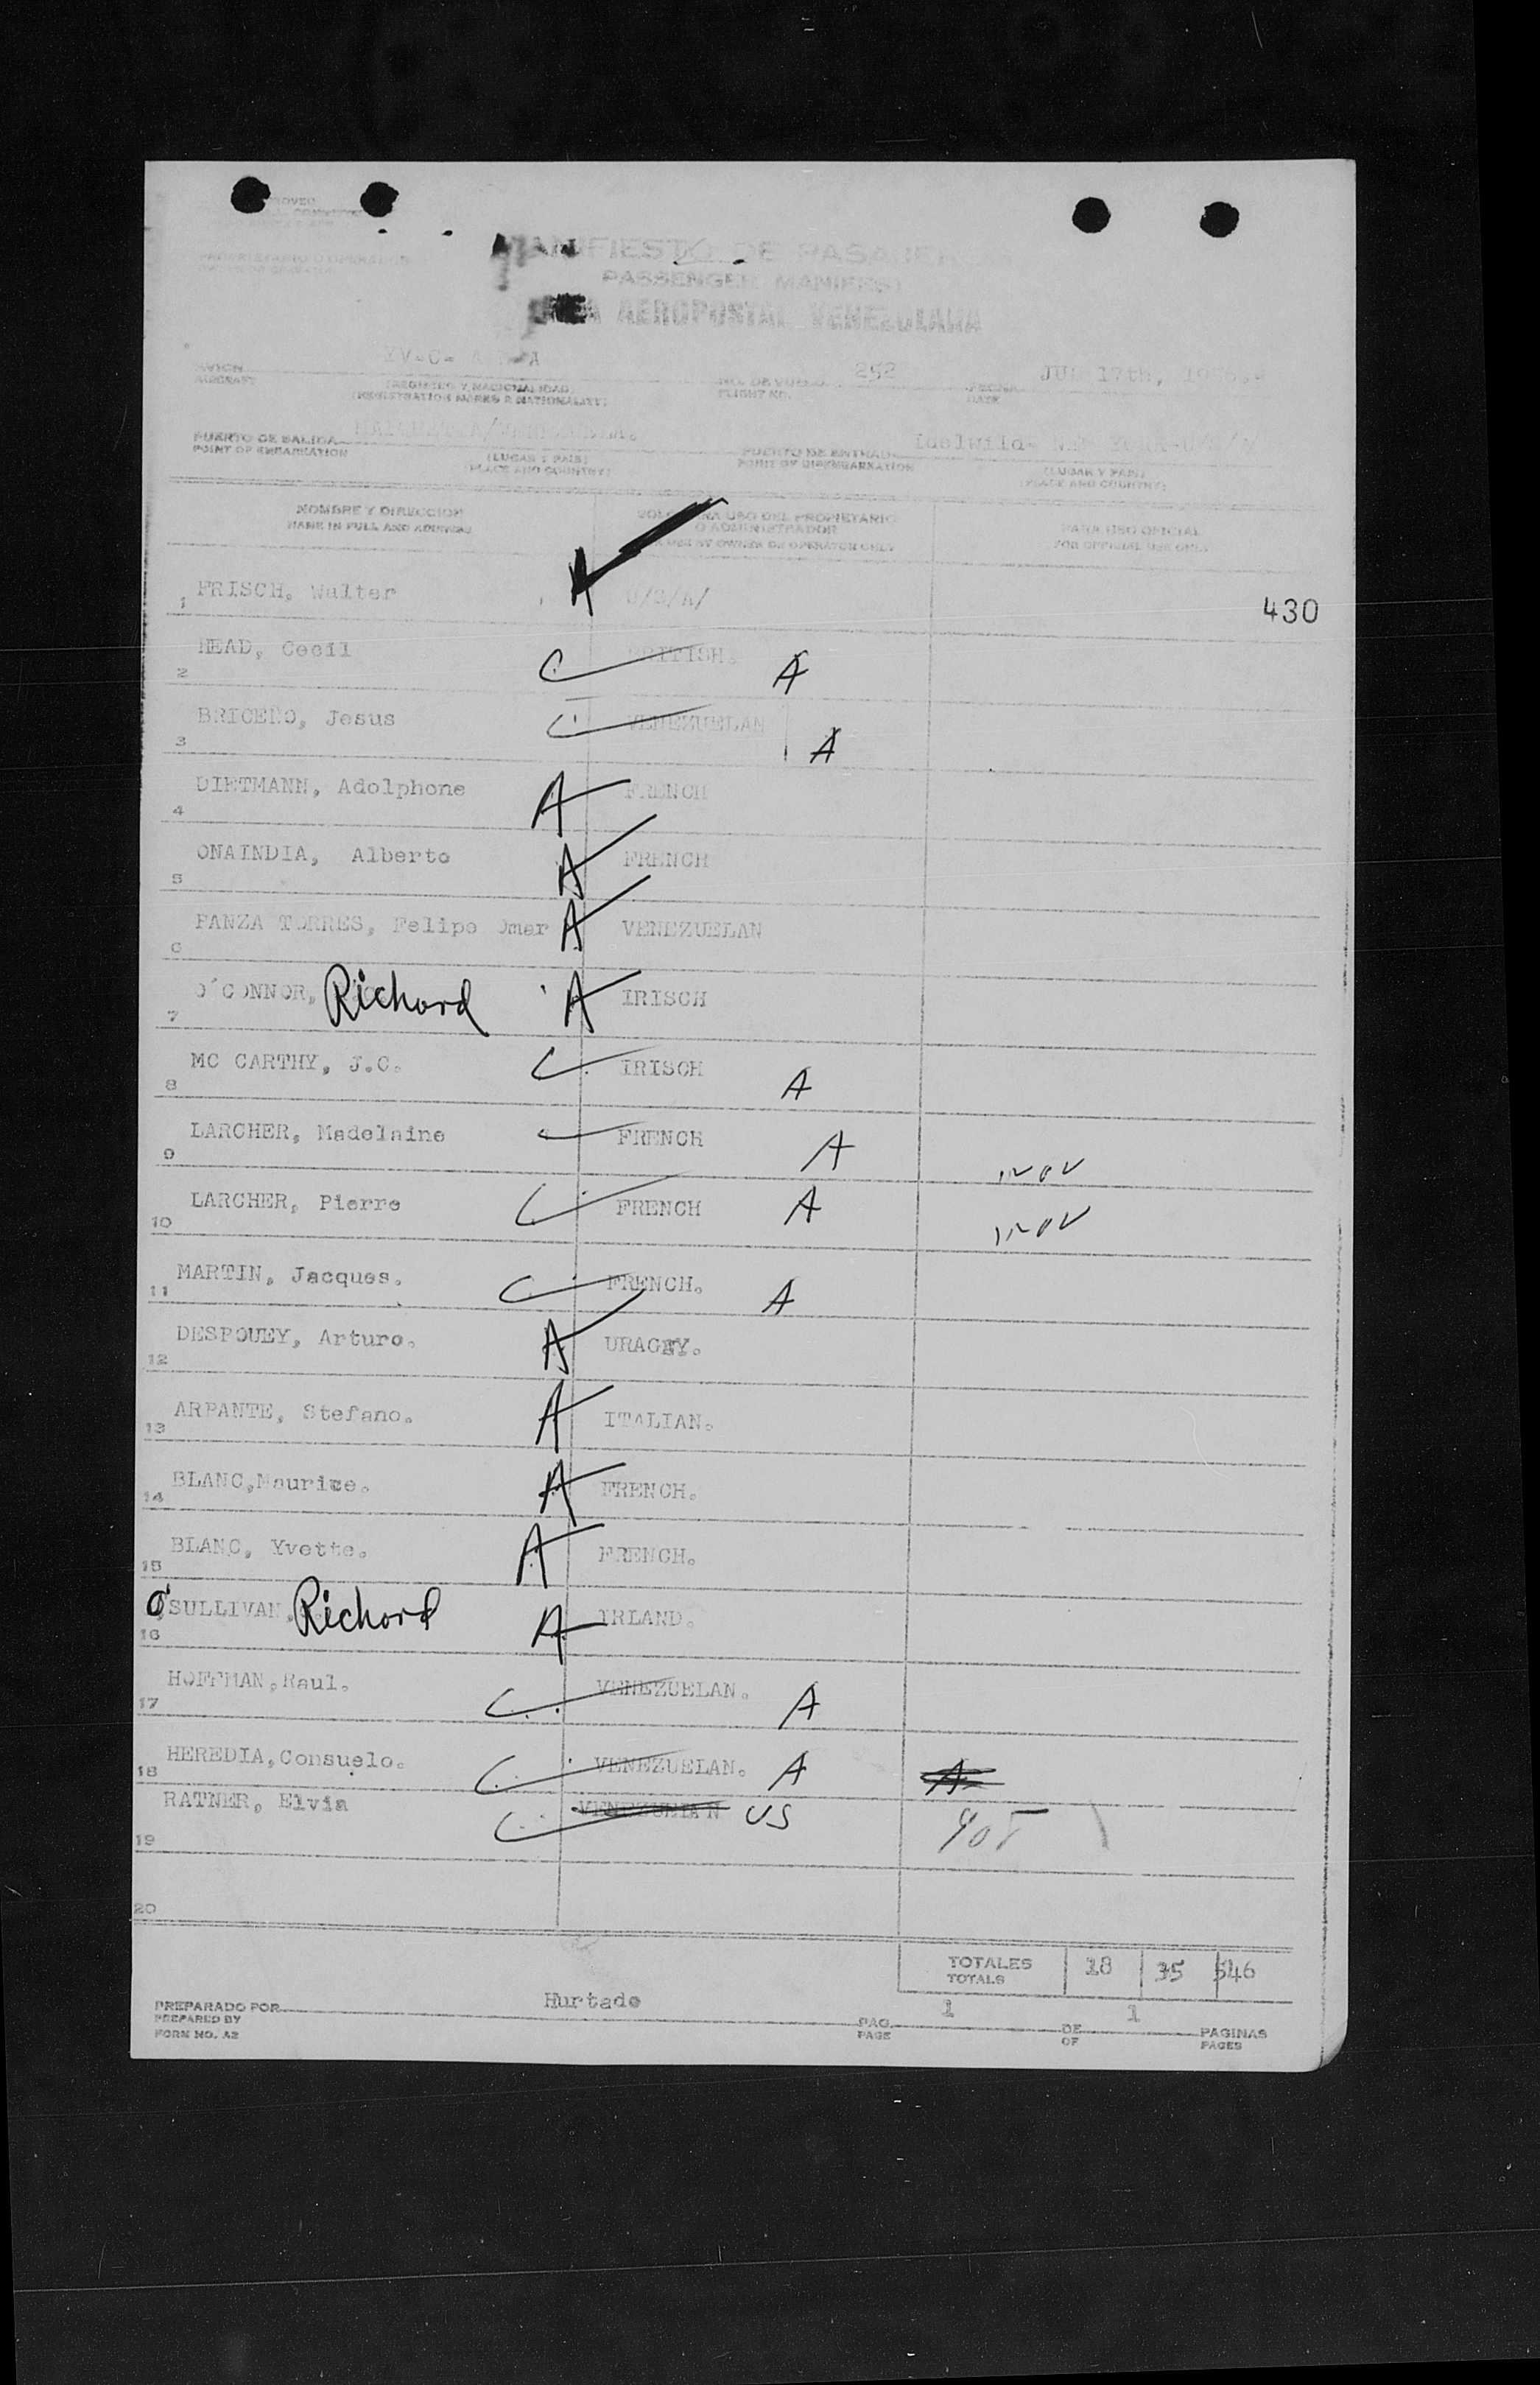 MANIFIESTO DE PASAJEROS
PASSENGER MANIFEST
LINEA AEROPOSTAL VENEZOLANA
YV-C- A
252
JUL 17th,
AVION
AIRCRAFT
(REGISTRO Y NACIONALIDAD)
(REGISTRATION MARKS & NATIONALITY)
NO. DE VUELO
FLIGHT NO.
FECHA
DATE
PUERTO DE SALIDA
POINT OF EMBARKATION
(LUGAR Y PAIS)
(PLACE AND COUNTRY)
PUERTO DE ENTRADA
POINT OF DISEMBARKATION
Idelwild- NEW YORK-
(LUGAR Y PAIS)
(PLACE AND COUNTRY)
NOMBRE Y DIRECCION
NAME IN FULL AND ADDRESS
SOLO PARA USO DEL PROPIETARIO
O ADMINISTRADOR
FOR USE BY OWNER OR OPERATOR ONLY
PARA USO OFICIAL
FOR OFFICIAL USE ONLY
1 FRISCH. Walter A U/S/A/
430
2 HEAD, Cecil BRITISH. A
3 BRICEÑO, Jesus VENEZUELAN A
4 DIETMANN, Adolphone A FRENCH
5 ONAINDIA, Alberto A FRENCH
6 PANZA TORRES, Felipe Omar A VENEZUELAN
7 O'CONNOR, Richard A IRISCH
8 MC CARTHY, J.C. IRISCH A
9 LARCHER, Madelaine FRENCH A
10 LARCHER, Pierre FRENCH A
11 MARTIN, Jacques. FRENCH. A
12 DESPOUEY, Arturo. A URAGEY.
13 ARPANTE, Stefano. A ITALIAN.
14 BLANC,Maurice. A FRENCH.
15 BLANC, Yvette. A FRENCH.
16 O'SULLIVAN, Richard A IRLAND.
17 HOFFMAN,Raul. VENEZUELAN. A
18 HEREDIA,Consuelo. VENEZUELAN. A A
19 RATNER, Elvia VENEZUELAN US
20
TOTALES
TOTALS
18 35 546
PREPARADO POR
PREPARED BY
FORM NO. A2
Hurtado
PAG.
PAGE
1
DE
OF
1
PAGINAS
PAGES